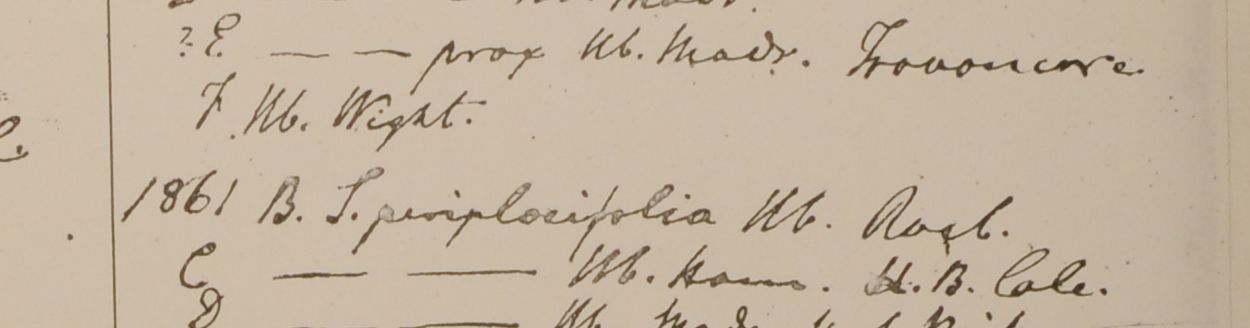 ?E — — prox Hb. Madr. Travancore
F Hb. Wight.
1861 B. S. periplocifolia Hb. Roxb.
C — — Hb. Ham. H. B. Calc.
D — Hb. Madr.